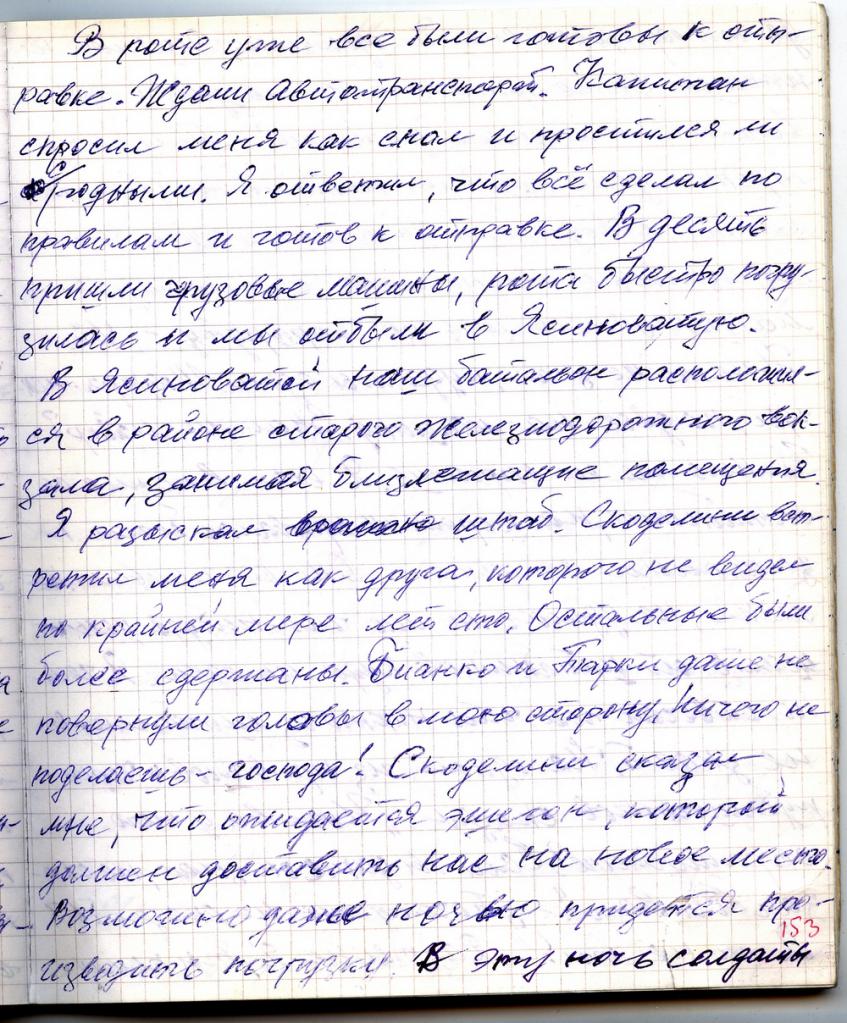 В роте уже все были готовы к отп-
равке. Ждали автотранспорт. Капитан
спросил меня как спал и простился ли
с родными. Я ответил, что всё сделал по
правилам и готов к отправке. В десять
пришли грузовые машины, рота быстро погру-
зилась и мы отбыли в Ясиноватую.
В Ясиноватой наш батальон расположил-
ся в районе старого железнодорожного вок-
зала, занимая близлежащие помещения.
Я разыскал штаб. Скоделини вст-
ретил меня как друга, которого не видел
по крайней мере лет сто. Остальные были
более сдержаны. Бианко и Тарки даже не
повернули головы в мою сторону. Ничего не
поделаешь - господа! Скоделини сказал
мне, что ожидается эшелон, который
должен доставить нас на новое место.
Возможно даже ночью придется про-
153
изводить погрузку. В эту ночь солдаты